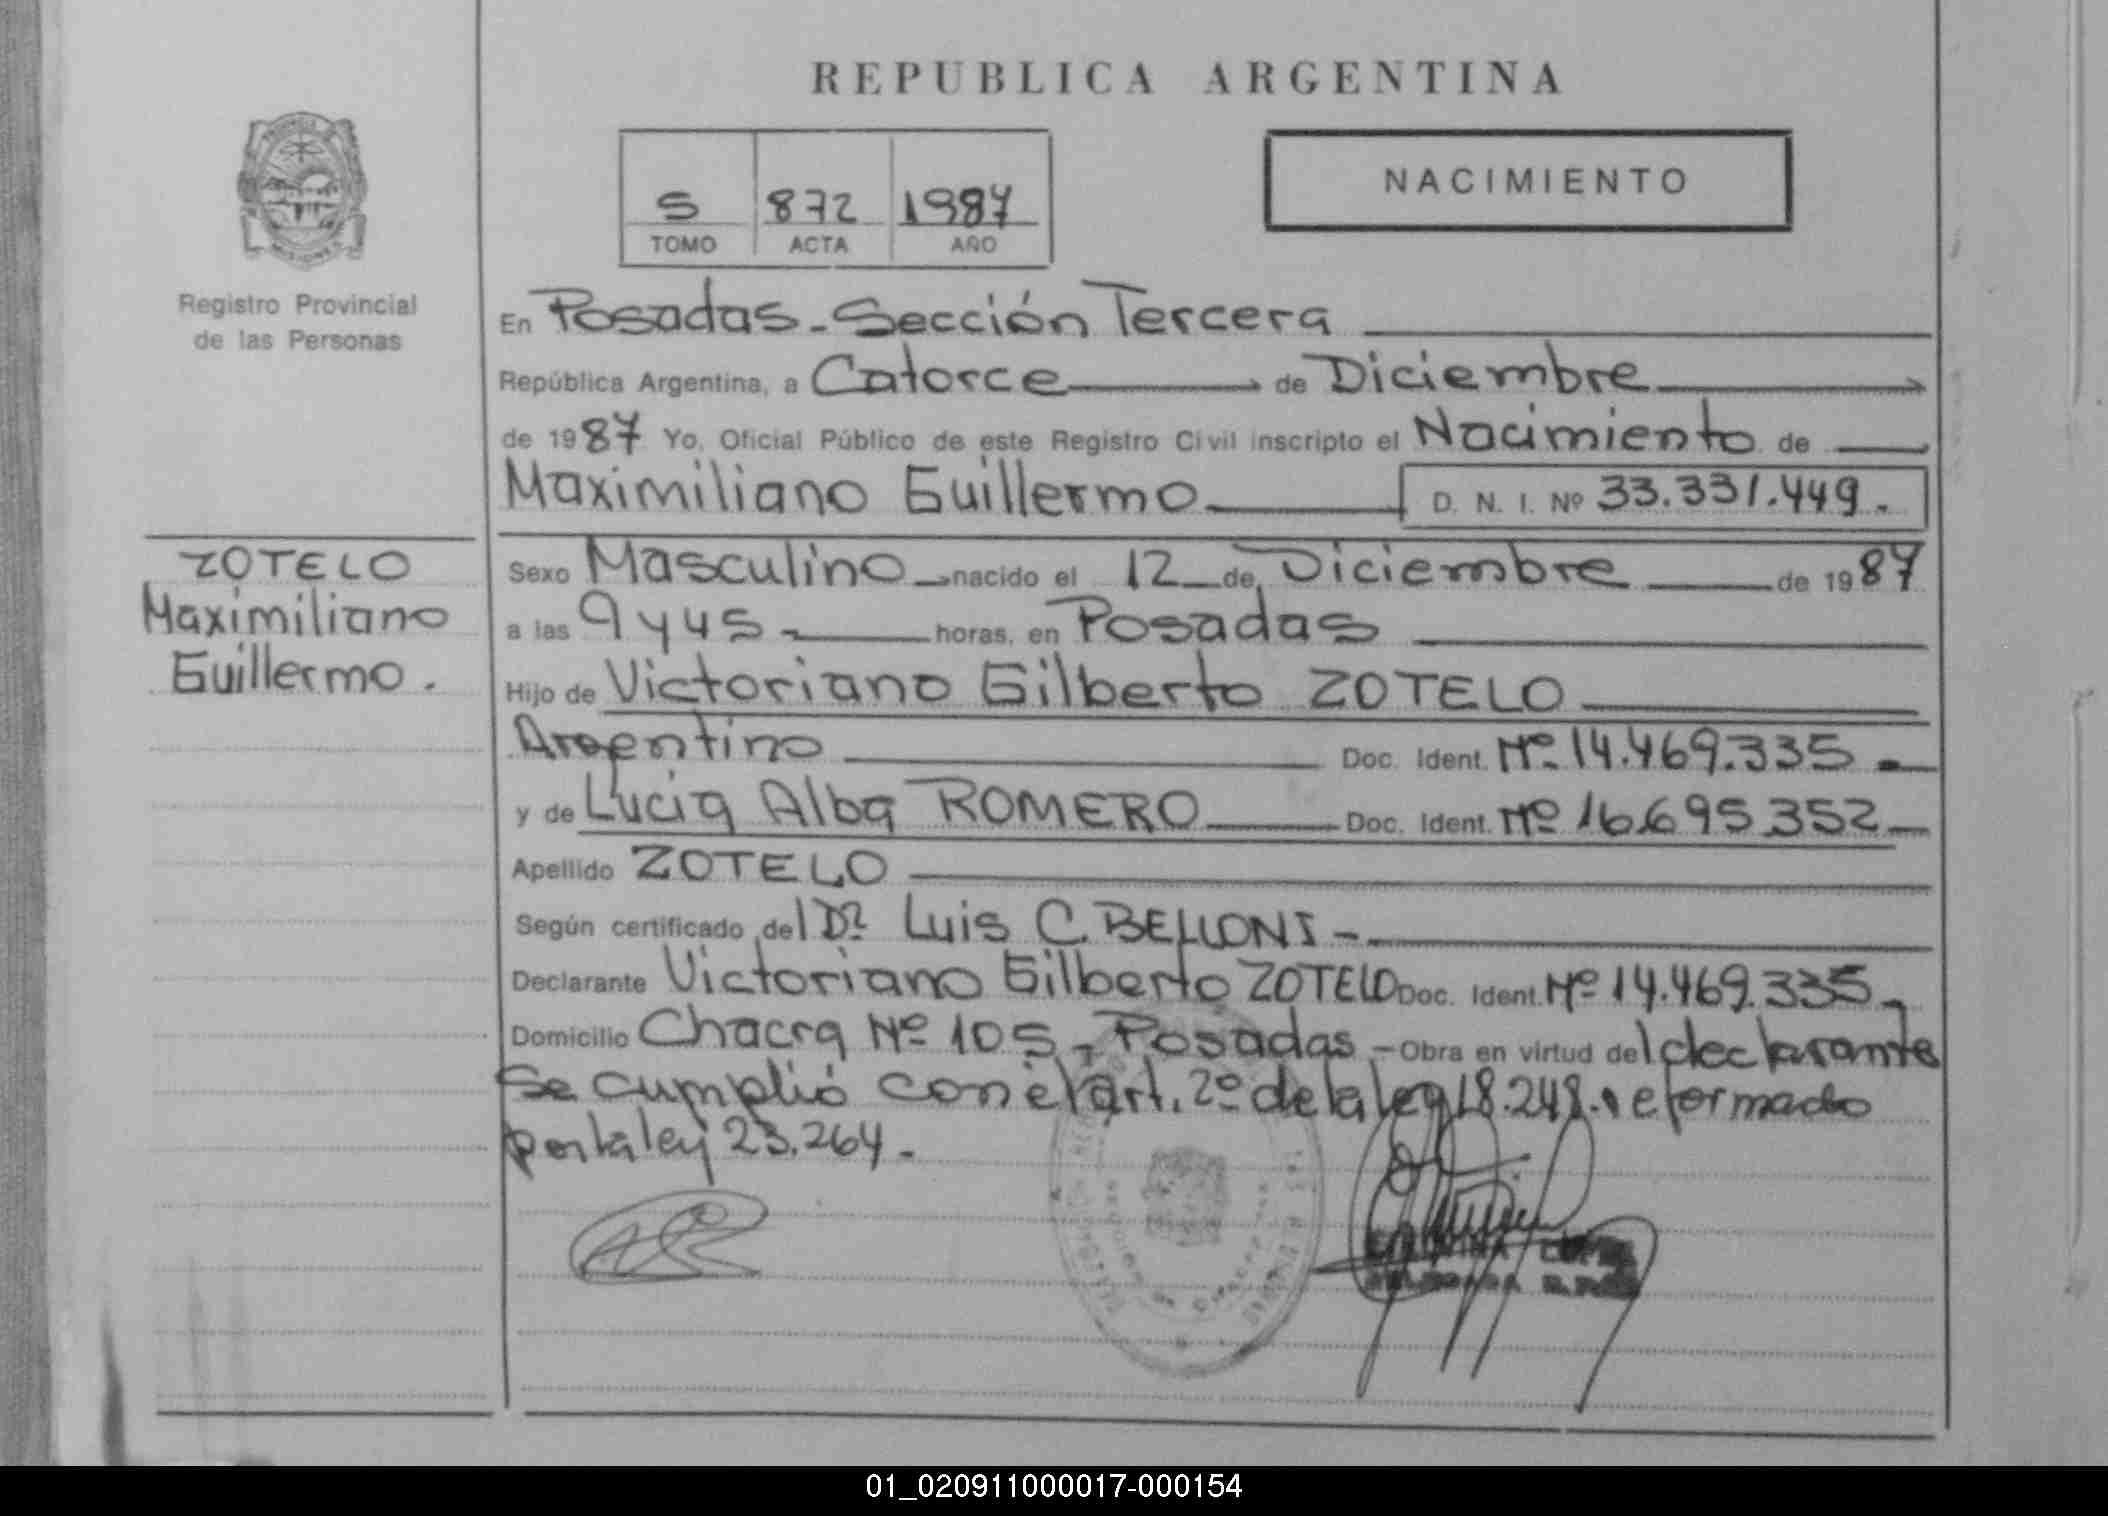 REPUBLICA ARGENTINA
NACIMIENTO
5 872 1987
TOMO ACTA AÑO
PROVINCIA DE MISIONES
Registro Provincial
de las Personas
ZOTELO
Maximiliano
Guillermo.
En Posadas - Sección Tercera
República Argentina, a Catorce de Diciembre
de 1987 Yo, Oficial Público de este Registro Civil inscripto el Nacimiento de
Maximiliano Guillermo D. N. I. Nº 33.331.449.-
Sexo Masculino nacido el 12 de Diciembre de 1987
a las 9 y 45 - horas, en Posadas
Hijo de Victoriano Gilberto ZOTELO
Argentino Doc. Ident. Nº 14.469.335 -
y de Lucia Alba ROMERO Doc. Ident. Nº 16.695.352
Apellido ZOTELO
Según certificado del Dr. Luis C. BELLONI -
Declarante Victoriano Gilberto ZOTELO Doc. Ident. Nº 14.469.335 -
Domicilio Chacra Nº 105 - Posadas.- Obra en virtud del declarante
Se cumplió con el art. 2º de la ley 18.248. reformado
por la ley 23.264 -
01_020911000017-000154